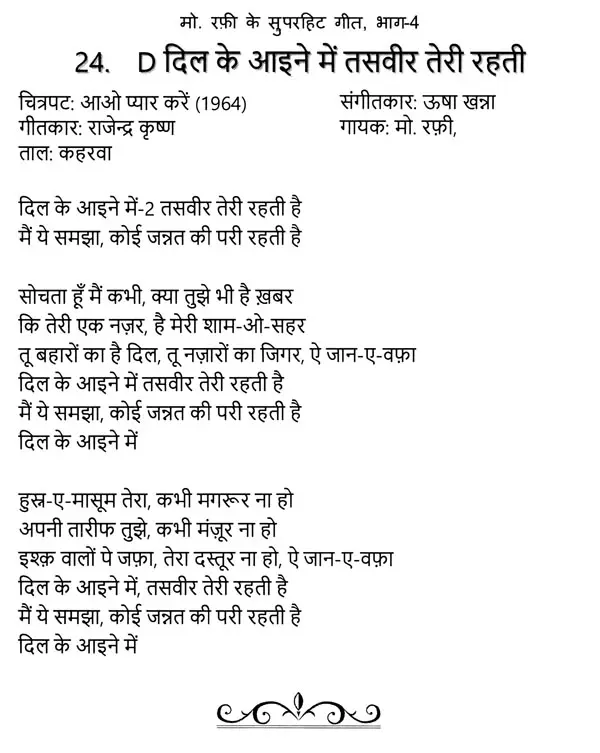 मो. रफ़ी के सुपरहिट गीत, भाग-4
24. D दिल के आइने में तसवीर तेरी रहती
चित्रपट: आओ प्यार करें (1964) संगीतकार: ऊषा खन्ना
गीतकार: राजेन्द्र कृष्ण गायक: मो. रफ़ी,
ताल: कहरवा
दिल के आइने में-2 तसवीर तेरी रहती है
मैं ये समझा, कोई जन्नत की परी रहती है
सोचता हूँ मैं कभी, क्या तुझे भी है ख़बर
कि तेरी एक नज़र, है मेरी शाम-ओ-सहर
तू बहारों का है दिल, तू नज़ारों का जिगर, ऐ जान-ए-वफ़ा
दिल के आइने में तसवीर तेरी रहती है
मैं ये समझा, कोई जन्नत की परी रहती है
दिल के आइने में
हुस्न-ए-मासूम तेरा, कभी मगरूर ना हो
अपनी तारीफ तुझे, कभी मंज़ूर ना हो
इश्क़ वालों पे जफ़ा, तेरा दस्तूर ना हो, ऐ जान-ए-वफ़ा
दिल के आइने में, तसवीर तेरी रहती है
मैं ये समझा, कोई जन्नत की परी रहती है
दिल के आइने में